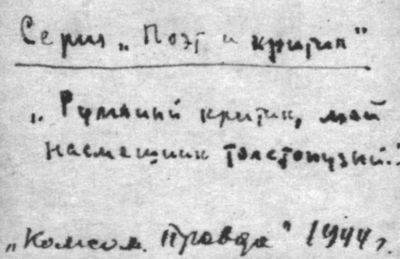 Серия „Поэт и критик"
„Румяный критик, мой
насмешник толстопузый."
„Комсом. Правда" 1944 г.